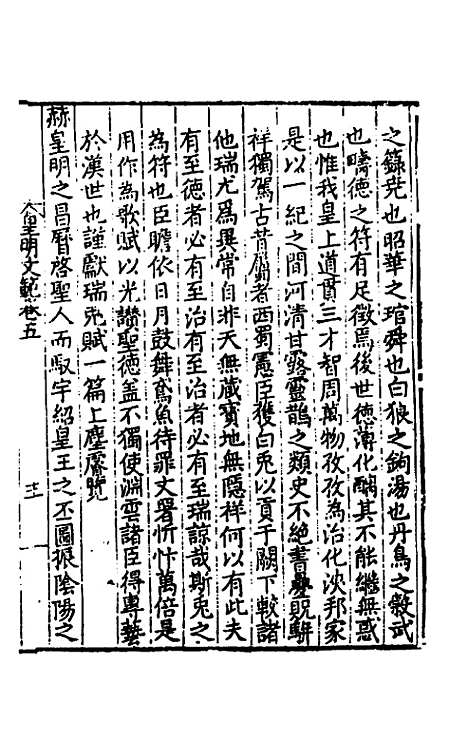 之籙堯也昭華之琯舜也白狼之鉤湯也丹鳥之穀武
也疇德之符有足徵焉後世德薄化醨其不能繼無惑
也惟我皇上道貫三才智周萬物孜孜為治化浹邦家
是以一紀之間河清甘露靈鵲之類史不絕書疊貺駢
祥獨駕古昔屬者西蜀憲臣獲白兎以貢于闕下較諸
他瑞尤為異常自非天無藏寶地無隱祥何以有此夫
有至德者必有至治有至治者必有至瑞諒哉斯兎之
為符也臣瞻依日月鼓舞鳶魚待罪文署忻忭萬倍是
用作為歌賦以光讚聖德盖不獨使淵雲諸臣得專藝
於漢世也謹獻瑞兎賦一篇上塵睿覽
赫皇明之昌曆啓聖人而馭宇紹皇王之丕圖振陰陽之
皇明文範卷五